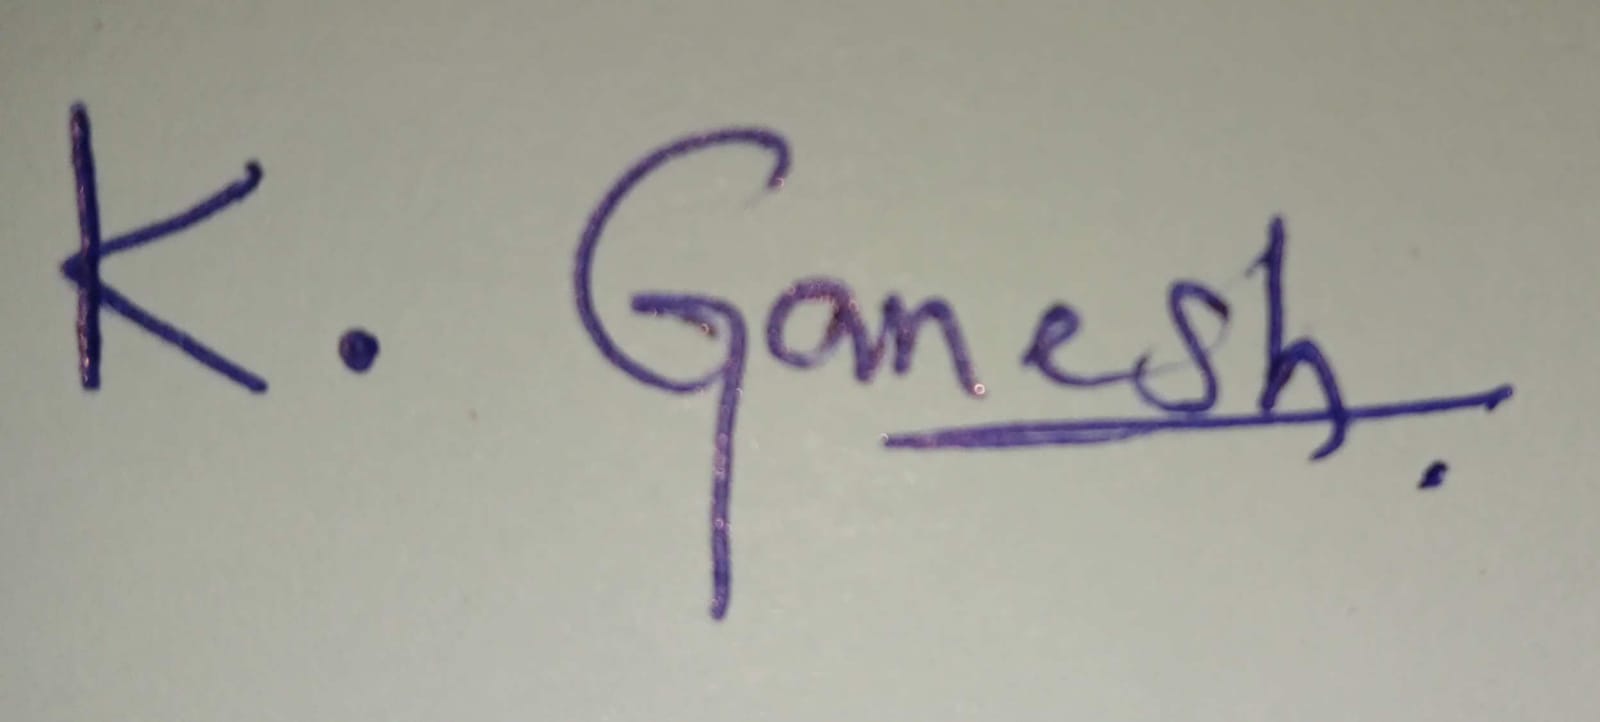 K. Ganesh.